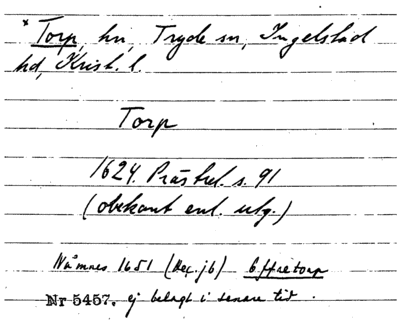 * Torp, hn, Tryde sn, Ingelstad
hd, Krist. l.
Torp
1624. Präst rel. s. 91
(obekant enl. utg.)
Nämnes 1651 (Dec. jb) Offretorp
Nr 5457. ej belagt i senare tid.